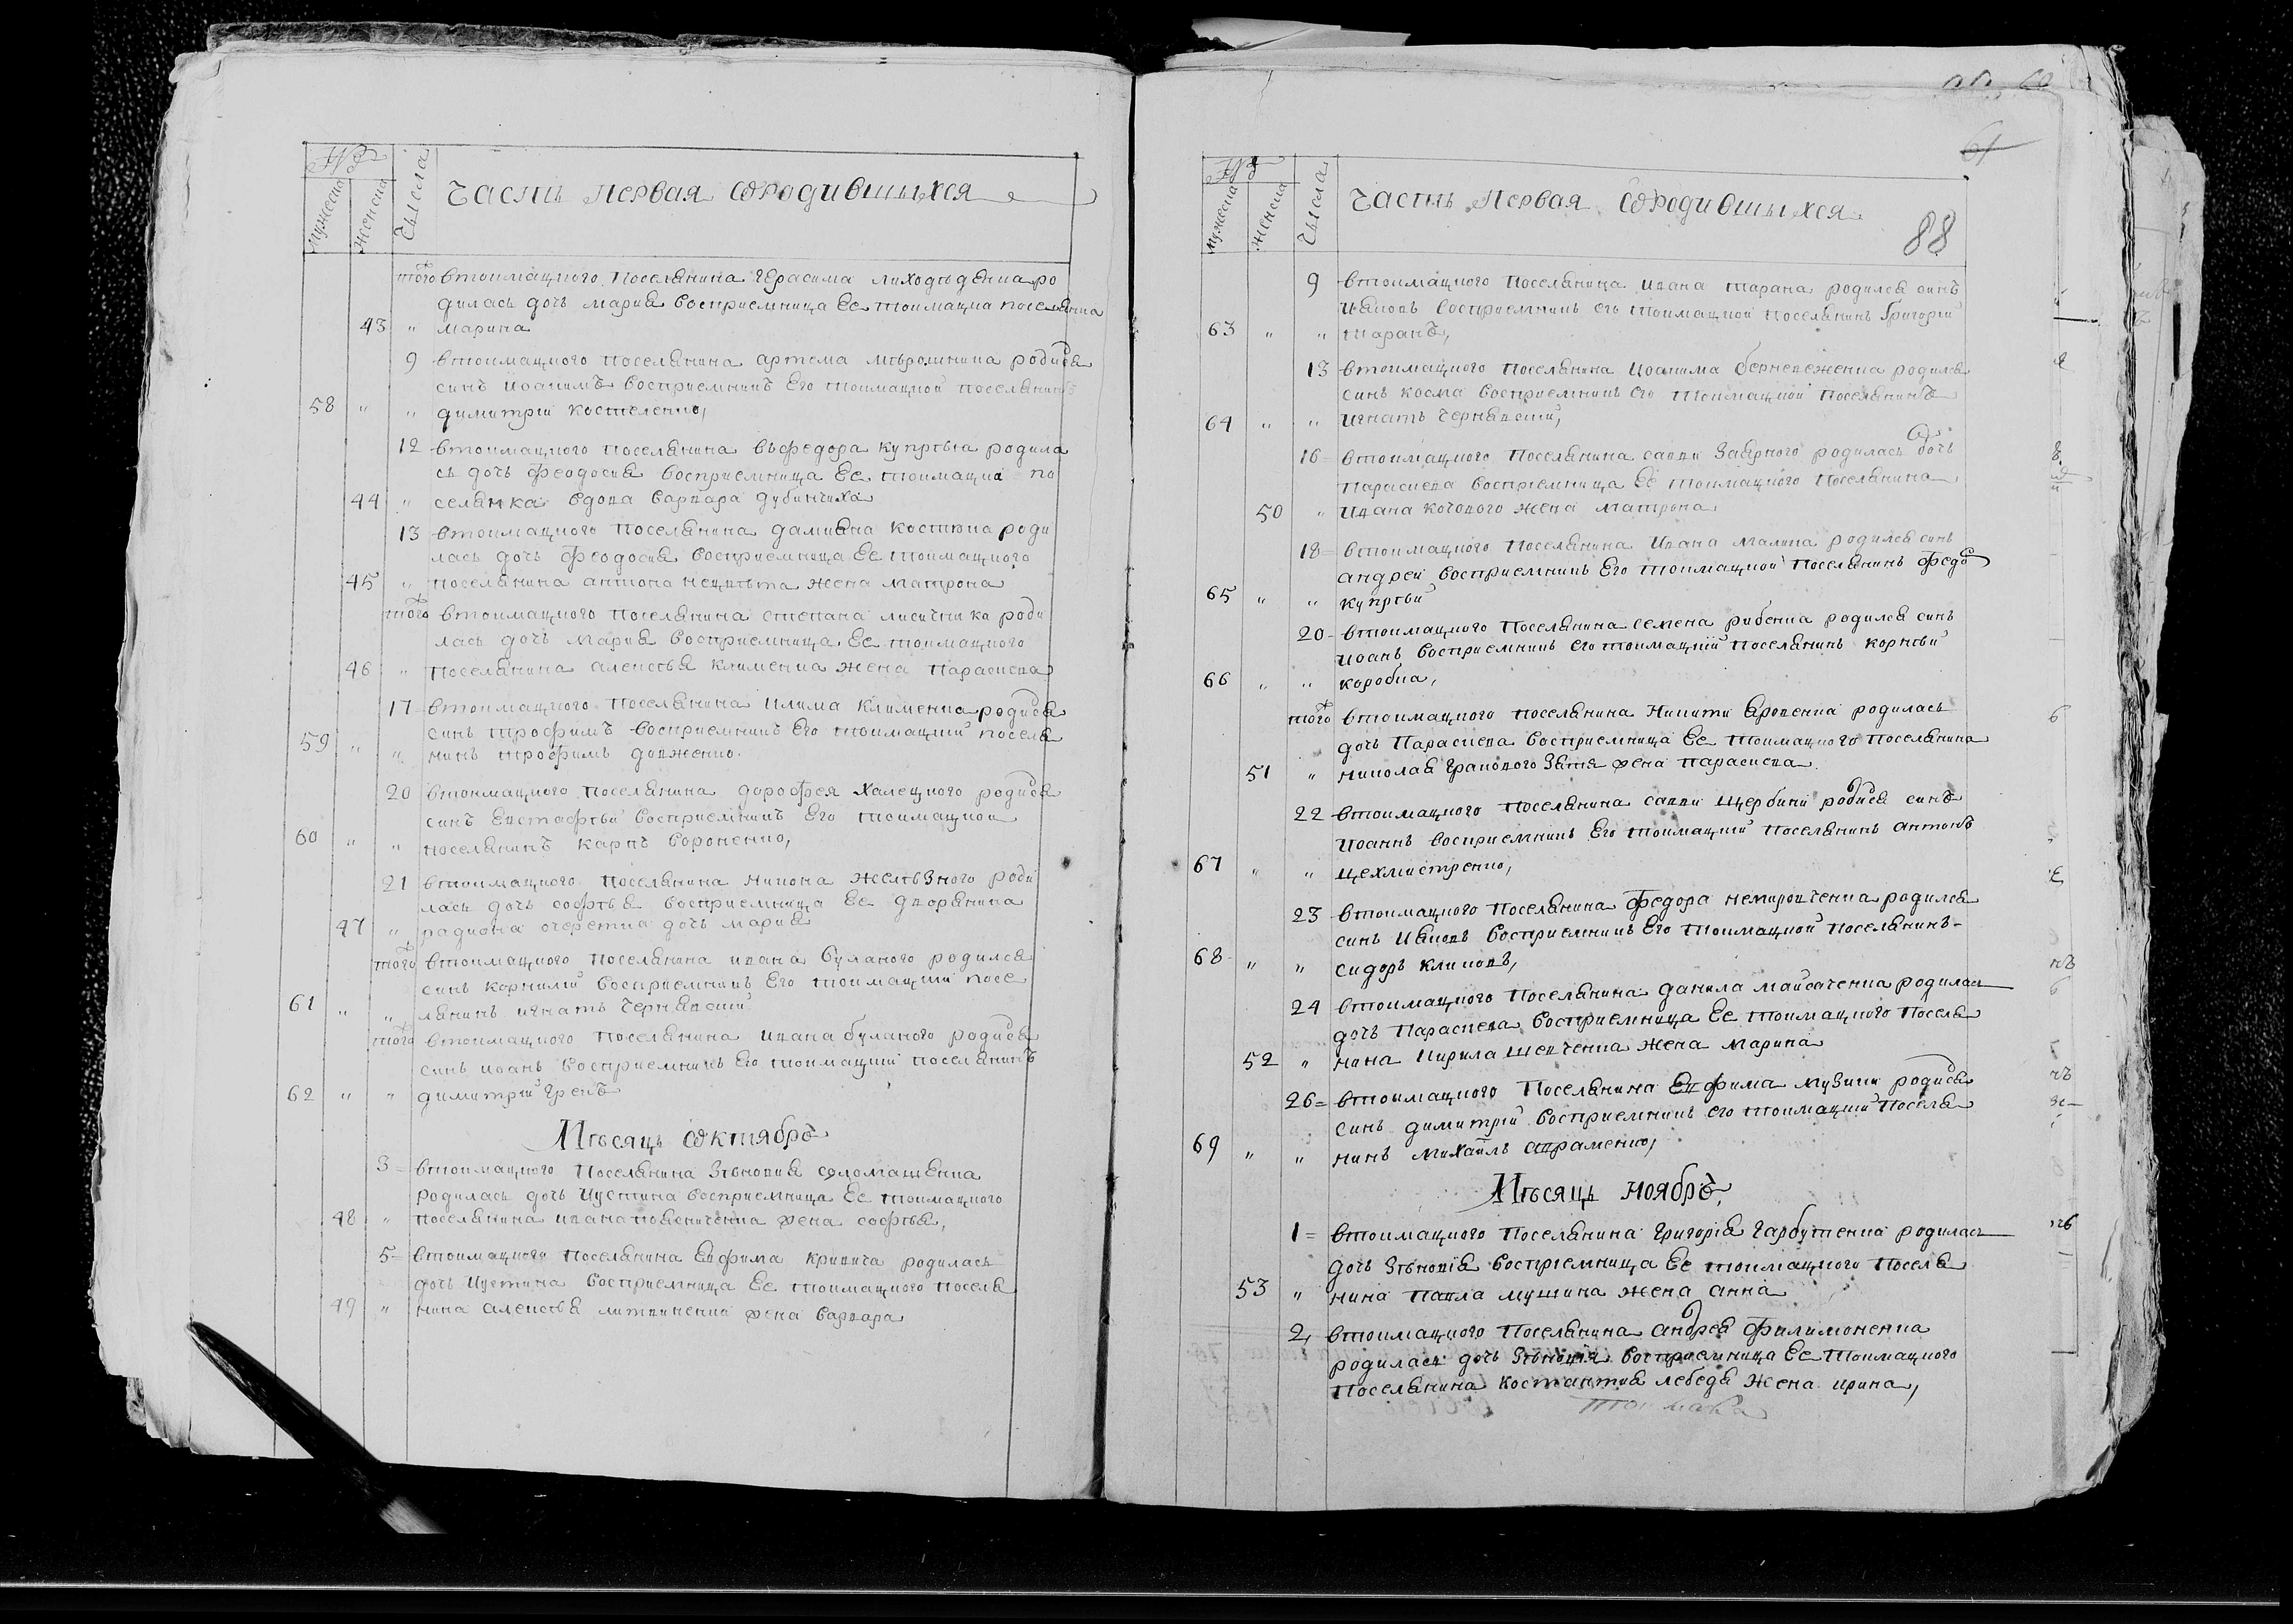 №
мужеска
женска
Числа
Часть Первая Ѡродившихся
того втокмацкого Поселянина Герасима лиходѣденка ро
дилась дочь мария восприемница Ее токмацка поселянка
43 " марина
9 втокмацкого поселянина артема мѣрошника родися
синъ иоакимъ восприемникъ Его токмацкой поселянинъ
58 " " димитрій костюченко,
12 втокмацкого поселянина федора купрѣя родила
сь дочь феодосия восприемница Ее токмацка по
44 " селянка вдова варвара дубинчиха
13 втокмацкого поселянина дамияна костюка роди
лась дочь феодосия восприемница Ее токмацкого
45 " поселянина антона нецвѣта жена матрона
того втокмацкого поселянина степана лисички ка роди
лась дочь мария восприемница Ее токмацкого
46 " поселянина алексѣя клименка жена параскева
17 втокмацкого поселянина клима клименка родися
синъ трофимъ восприемникъ Его токмацкий поселя
59 " " нинъ трофимъ довженко.
20 втокмацкого поселянина дорофея халецкого родися
синъ Евстафѣй восприемникъ Его токмацкой
60 " " поселянинъ карпъ вороненко,
21 втокмацкого поселянина никона желѣзного роди
лась дочь софѣя восприемница Ее дворянина
47 " радиона очеретка дочь мария
того втокмацкого поселянина ивана буланого родился
синъ корнилий восприемникъ Его токмацкий посе
61 " " лянинъ игнатъ чернявский
того втокмацкого поселянина ивана буланого родися
синъ иоанъ восприемникъ Его токмацкий поселянинъ
62 " " димитрій Грекъ
Мѣсяцъ Ѡктябрь
3 = втокмацкого поселянина Зѣновия соломашенка
родилась дочь Иустина восприемница Ее токмацкого
48 " поселянина ивана поясниченка жена софѣя,
5 втокмацкого поселянина Евфима кривича родилась
дочь Иустина восприемница Ее токмацкого поселя
49 " нина алексѣя литвиненка жена варвара
61
88
№
мужеска
женска
Числа
Часть Первая Ѡродившихся
9 втокмацкого Поселянина ивана тарана родился синъ
Ияковъ восприемникъ его токмацкой поселянинъ Григорій
63 " " Таранъ,
13 втокмацкого поселянина Иоакима бернеженка родился
синъ косма восприемникъ его токмацкой поселянинъ
64 " " игнатъ чернявский,
16 = втокмацкого поселянина савки Заярного родилась дочь
параскева восприемница Ее токмацкого поселянина
50 " Ивана кочового жена матрона
18 = втокмацкого поселянина Ивана малика родился синъ
андрей восприемникъ Его токмацкой поселянинъ федо
65 " " купрѣй
20 - втокмацкого поселянина семена рибенка родился синъ
иоанъ восприемникъ его токмацкий поселянинъ корнѣй
66 " " коробка,
того втокмацкого поселянина Никити Яровенка родилась
дочь Параскева восприемница Ее токмацкого поселянина
51 " николая Гракового Зятя жена параскева.
22 втокмацкого поселянина савки щербини родися синъ
Иоаннъ восприемникъ Его токмацкий поселянинъ антонъ
67 " " цехмистренко,
23 втокмацкого поселянина федора немировченка родился
синъ Ияковъ восприемникъ Его токмацкой поселянинъ
68 " " сидоръ климовъ,
24 втокмацкого поселянина данила майсаченка родилась
дочь Параскева восприемница Ее токмацкого поселя
52 " нина кирила шевченка жена марина
26 = втокмацкого поселянина Евфима музики родися
синъ димитрій восприемникъ его токмацкий поселя
69 " " нинъ михаилъ авраменко,
Мѣсяцъ ноябрь,
1 = втокмацкого поселянина григорія гарбузенка родилась
дочь Зѣновія восприемница Ее токмацкого поселя
53 " нина павла мушика жена анна
2, втокмацкого поселянина андрея филимоненка
родилась дочь Зѣновія восприемница Ее токмацкого
поселянина костантия лебедя жена ирина,
токмака